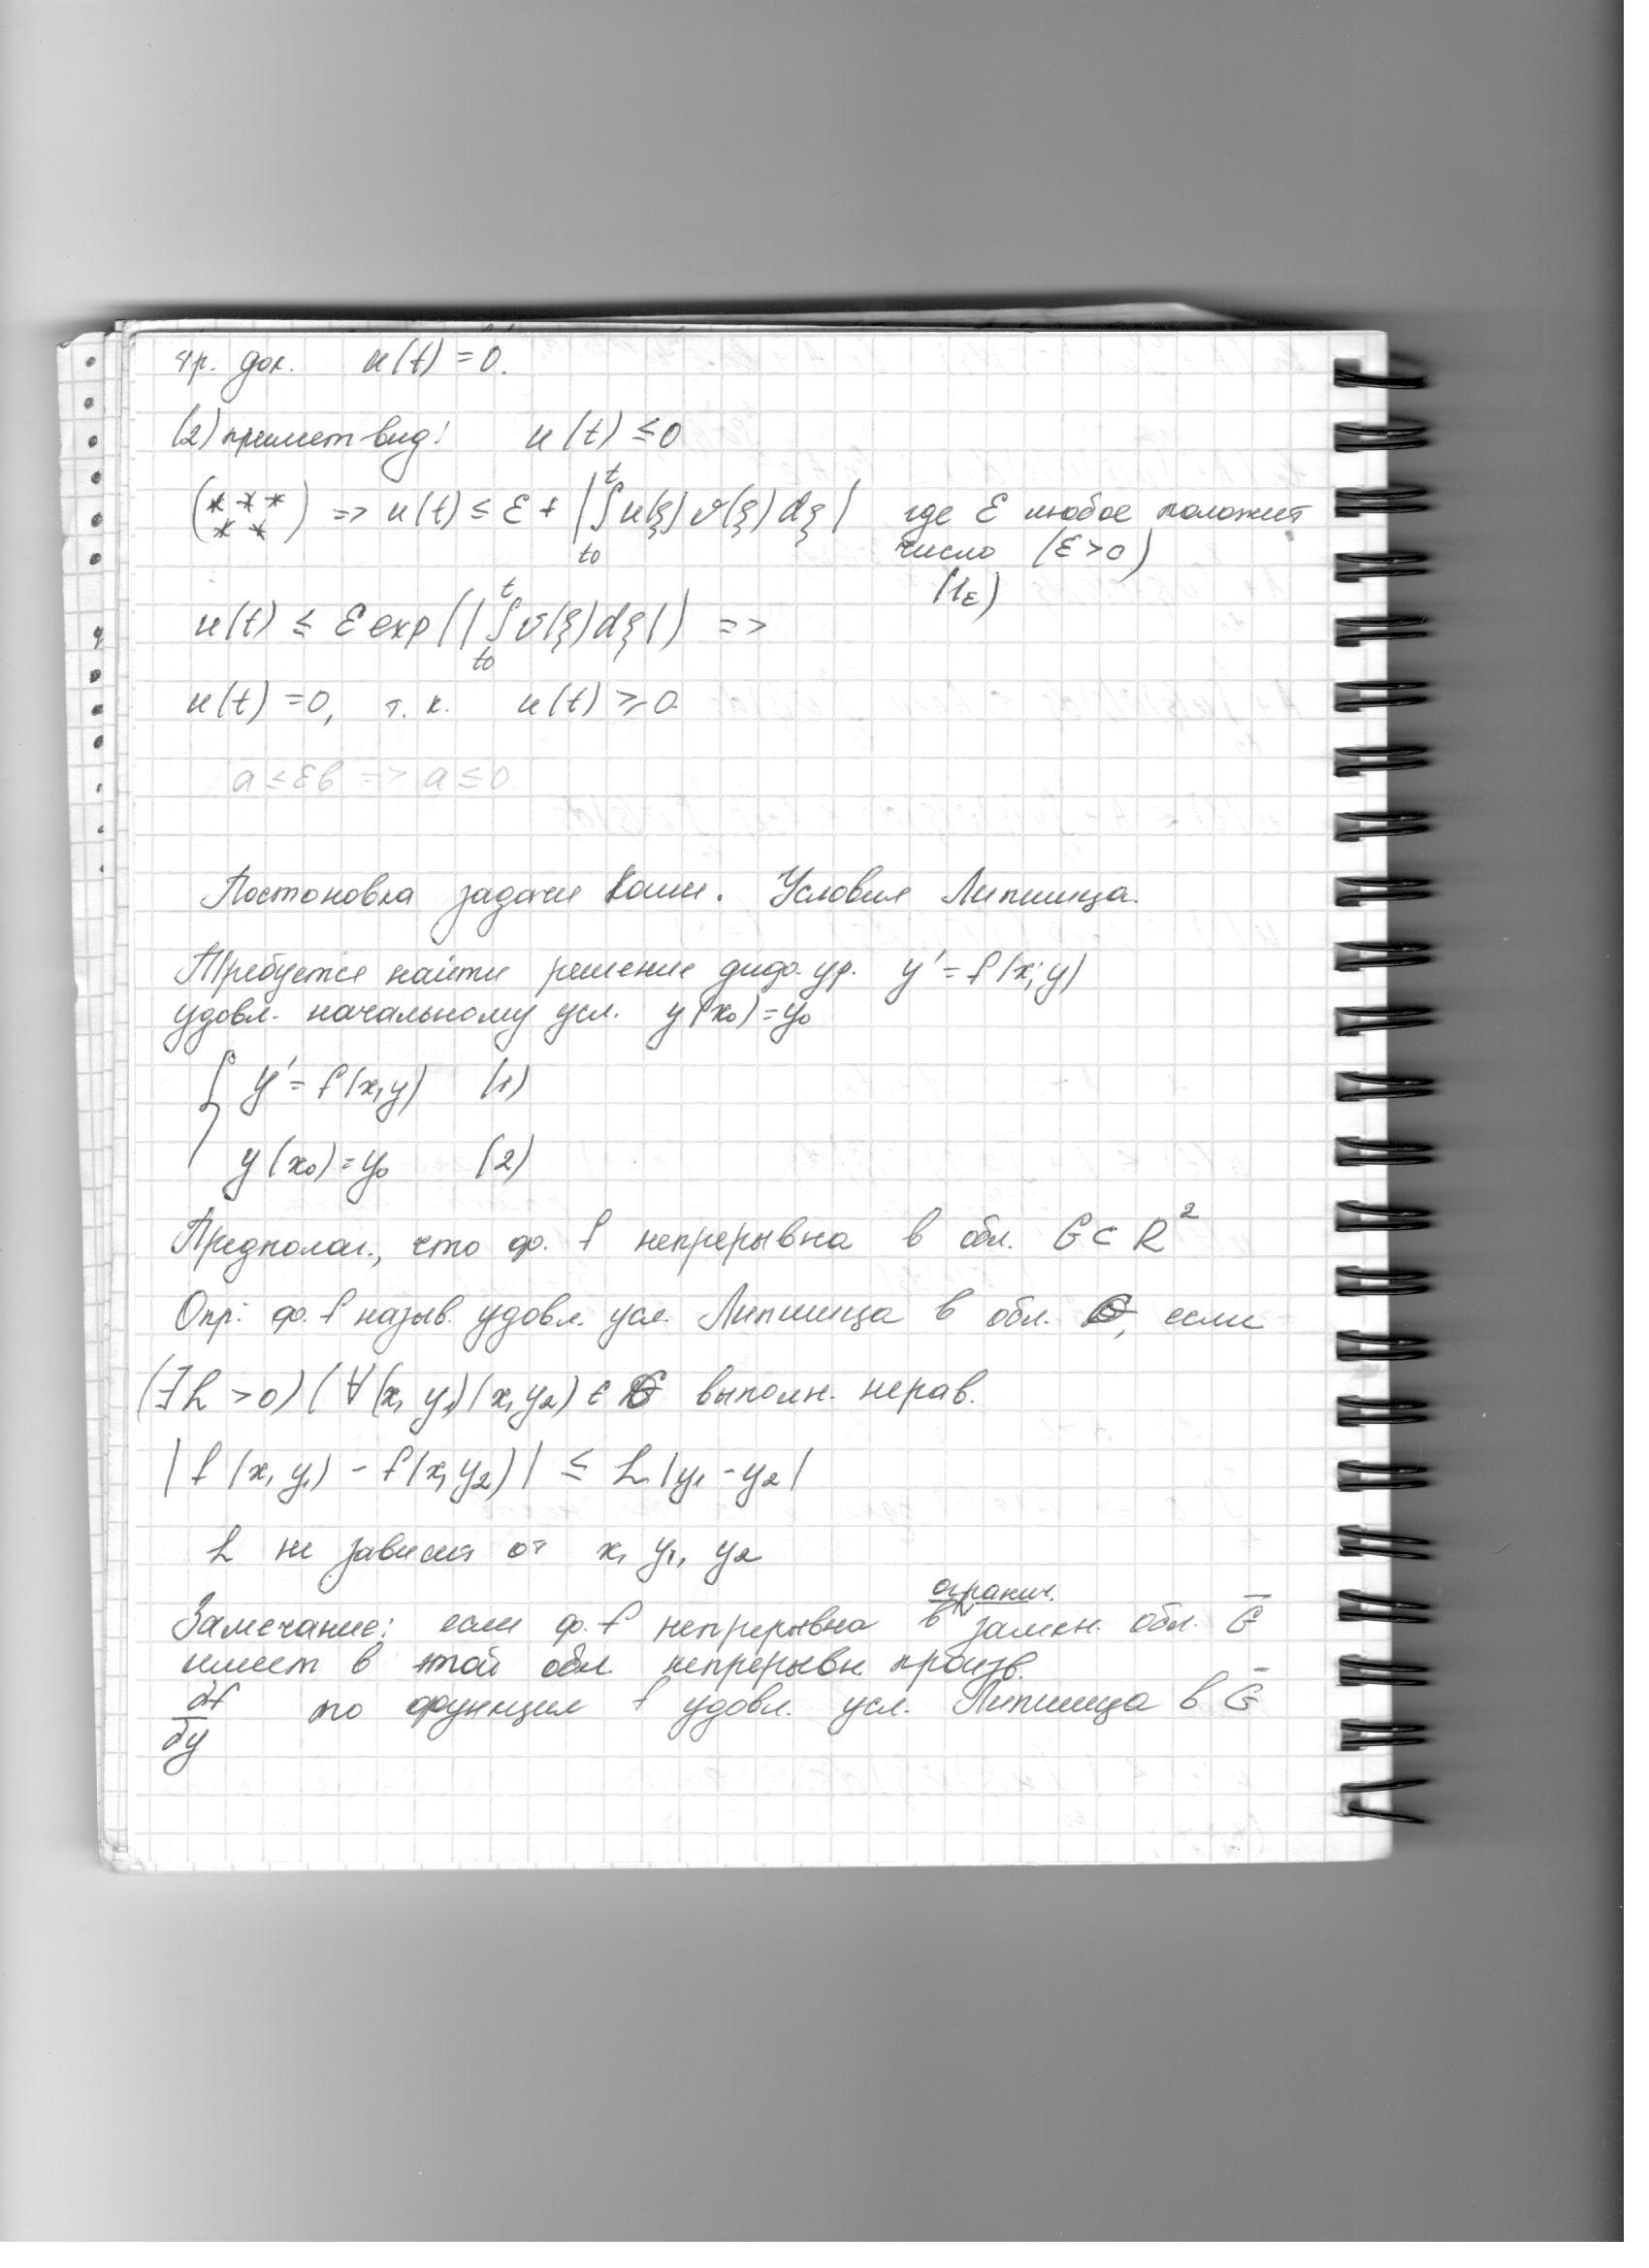 тр. док. u(t) = 0.
(2) примет вид: u(t) ≤ 0
(*****) => u(t) ≤ ε + |∫_{t0}^{t} u(ξ) v(ξ) dξ| где ε любое положит
число (ε > 0)
(1ε)
u(t) ≤ ε exp(|∫_{t0}^{t} v(ξ) dξ|) =>
u(t) = 0, т. к. u(t) ≥ 0
a ≤ εb => a ≤ 0
Постановка задачи Коши. Условия Липшица.
Требуется найти решение диф. ур. y' = f(x; y)
удовл. начальному усл. y(x₀) = y₀
{ y' = f(x, y) (1)
y(x₀) = y₀ (2)
Предполаг., что ф. f непрерывна в обл. G ⊂ R²
Опр: ф. f назыв. удовл. усл. Липшица в обл. G, если
(∃L > 0) (∀(x, y₁)(x, y₂) ∈ G выполн. нерав.
|f(x, y₁) - f(x, y₂)| ≤ L |y₁ - y₂|
L не зависит от x, y₁, y₂
огранич.
Замечание: если ф. f непрерывна в замкн. обл. G̅
имеет в этой обл. непрерывн. произв.
∂f/∂y то функция f удовл. усл. Липшица в G̅